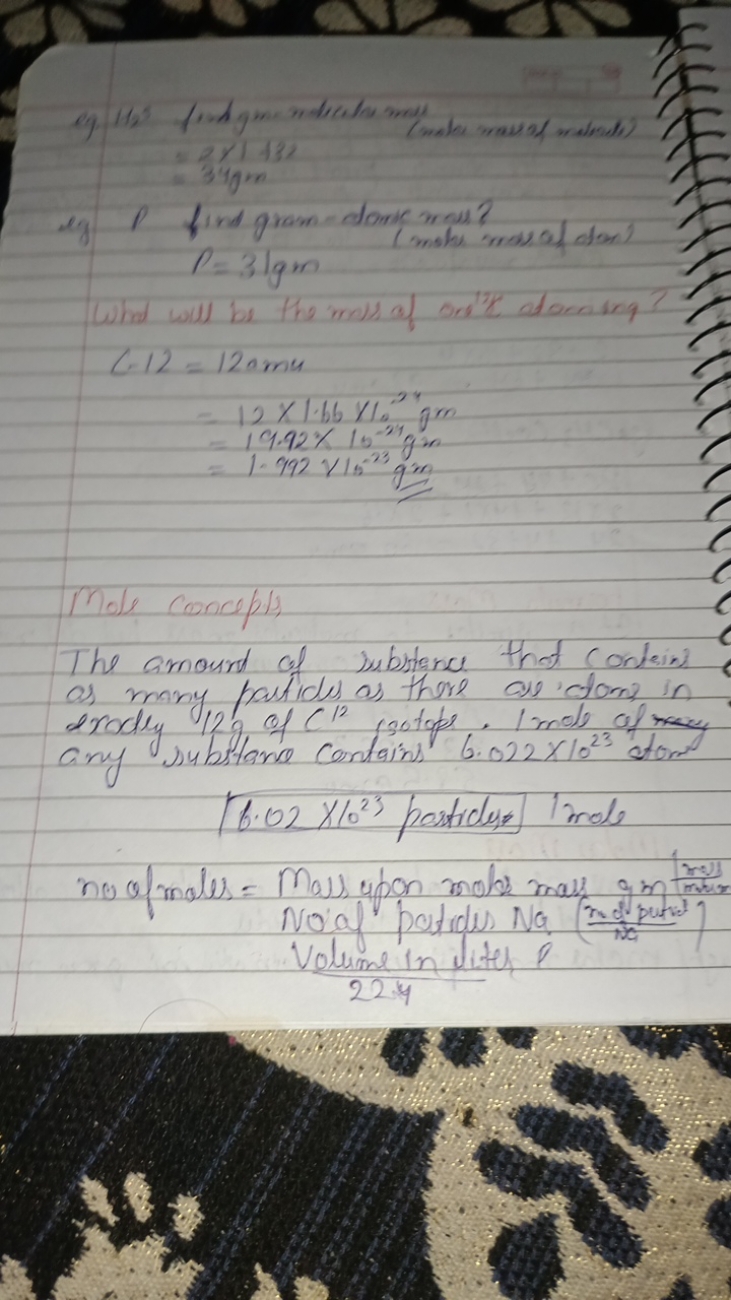 eg. H2S find gm-molecular mass
(molar mass of molecule)
= 2×1+32
= 34gm
eg P find gram-atomic mass?
(molar mass of atom)
P = 31gm
What will be the mass of one 12C atom in g?
C-12 = 12amu
= 12 × 1.66 × 10⁻²⁴ gm
= 19.92 × 10⁻²⁴ gm
= 1.992 × 10⁻²³ gm
Mole Concepts
The amount of substance that contains
as many particles as there are atoms in
exactly 12g of C¹² isotope. 1 mole of many
any substance contains 6.022×10²³ atom
6.02 × 10²³ particles 1 mole
no of moles = Mass upon molar mass gm
No of particles NA (no of particl/NA)
Volume in liter
22.4